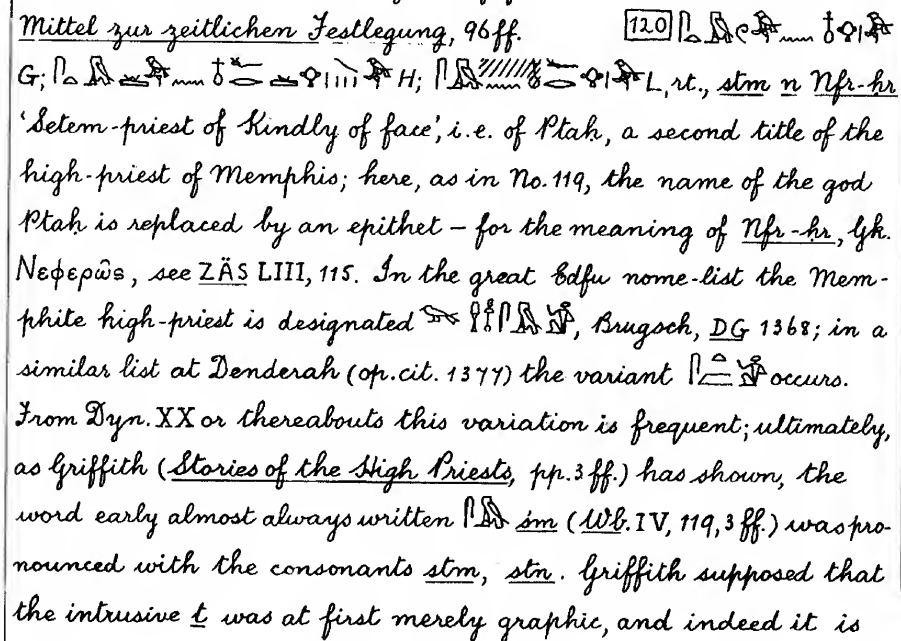 Mittel zur zeitlichen Festlegung, 96ff. 120
G; H; L, rt., stm n Nfr-ḥr
'Setem-priest of Kindly of face', i.e. of Ptaḥ, a second title of the
high-priest of Memphis; here, as in No. 119, the name of the god
Ptaḥ is replaced by an epithet – for the meaning of Nfr-ḥr, Gk.
Νεφερῶς, see ZÄS LIII, 115. In the great Edfu nome-list the Mem-
phite high-priest is designated , Brugsch, DG 1368; in a
similar list at Denderah (op. cit. 1377) the variant occurs.
From Dyn. XX or thereabouts this variation is frequent; ultimately,
as Griffith (Stories of the High Priests, pp. 3 ff.) has shown, the
word early almost always written śm (Wb. IV, 119, 3 ff.) was pro-
nounced with the consonants stm, stn. Griffith supposed that
the intrusive t was at first merely graphic, and indeed it is